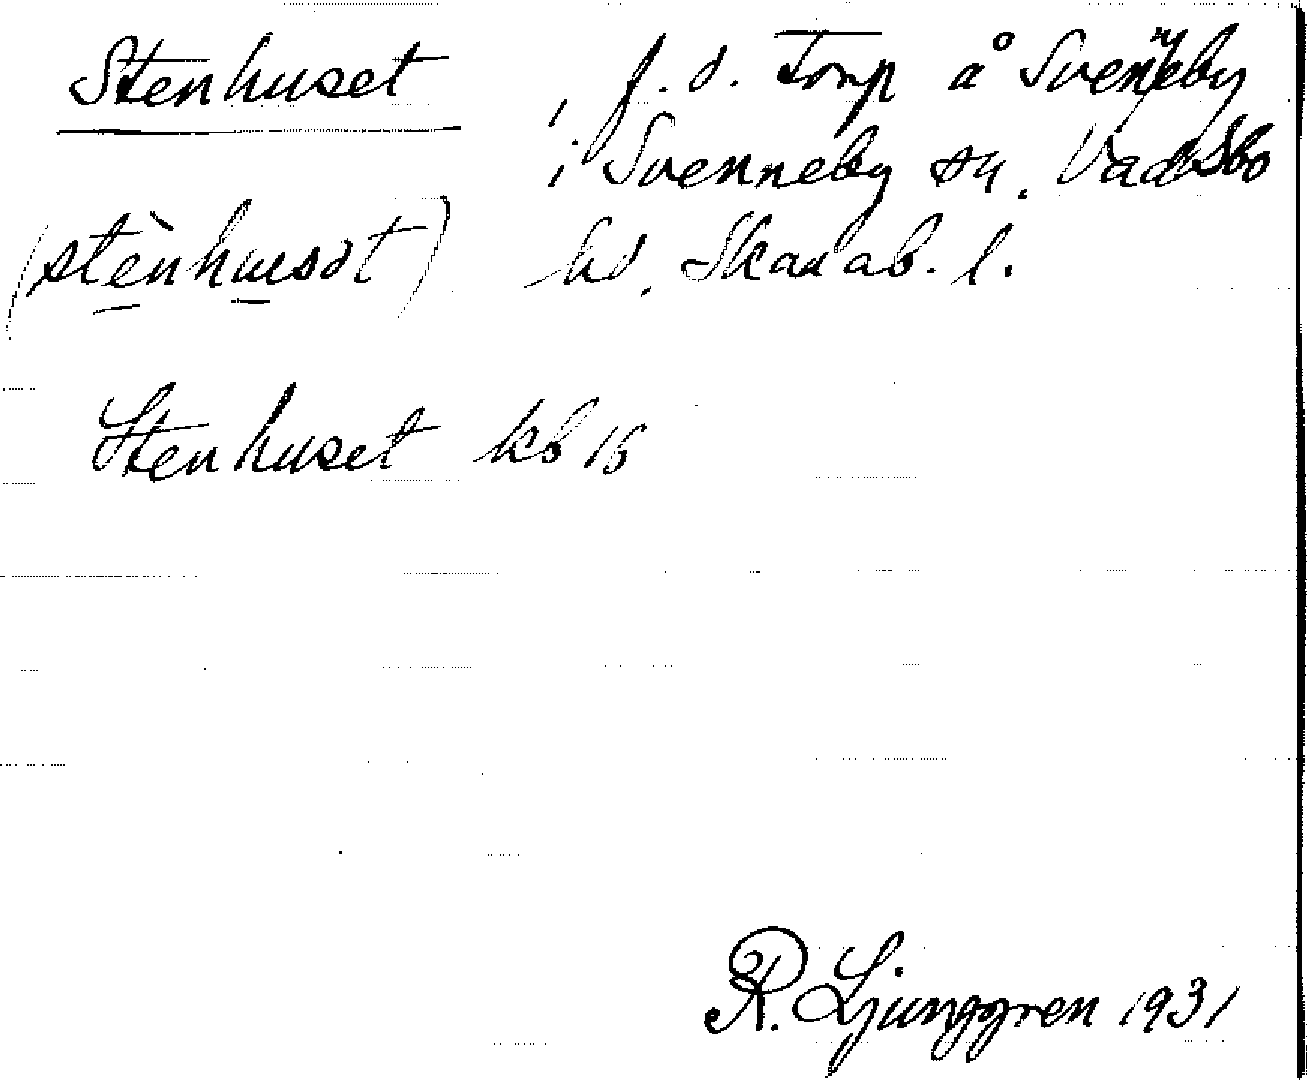 Stenhuset, f.d. Torp å Svenneby
i Svenneby sn. Vadsbo
(stènhusət) hd. Skarab. l.
Stenhuset kb 15
R. Ljunggren 1931